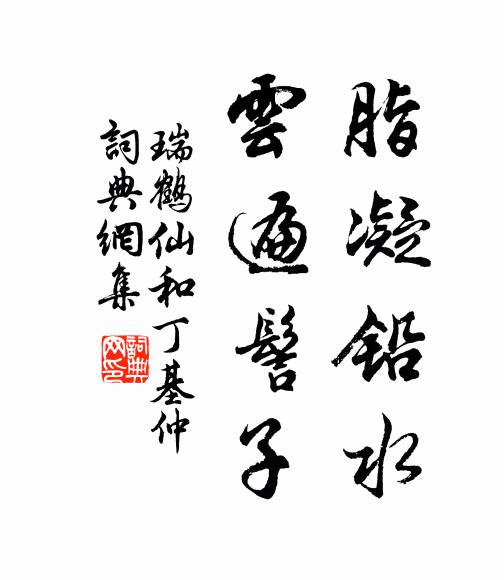 脂凝鉛水
雲遍髻子
瑞鶴仙和丁基仲
詞典網集
詞典网印